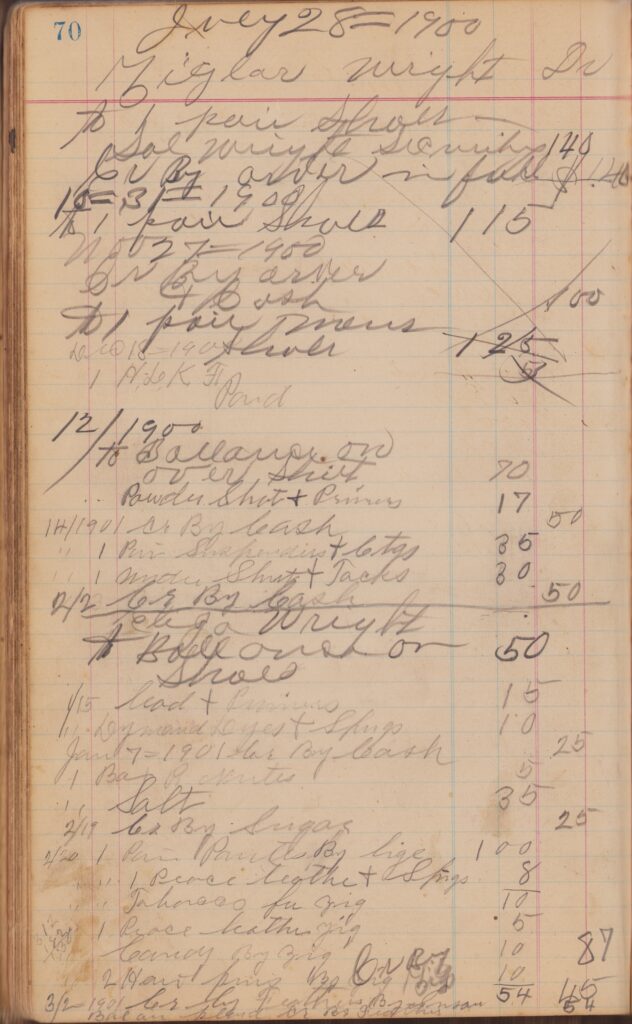 70
July 28=1900
Ziglar Wright Dr
to 1 pair Shoes
Sol Wright Security 140
Cr By order in full $1.40
10=31=1900
to 1 pair Shoes 115
Nov 27=1900
Cr By order
+ Cash 100
to 1 pair mens
Shoes 125
1
Paid
12/1900
to Ballance on
over Shirt 70
Powder Shot + Primers 17
14/1901 Cr By Cash 50
" 1 Pair Suspenders + Ctgs 35
" 1 under Shirt + Tacks 30
2/2 Cr By Cash 50
Wright
to Ballance on 50
Shoes
1/15 Lead + Primers 15
" Dyes + Spugs 10
Jan 7=1901 Cr By Cash 25
1 Box 5
" Salt 35
2/19 Cr By Sugar 25
2/20 1 Pair Pants By lige 100
" 1 Peace Cloth + Spugs 8
" Tobacco for zig 10
1 Peace zig 5
Candy By zig 10 87
2 Hair pins By zig 10
Cr By
54 45
3/2-1901 Cr By Feathers 54